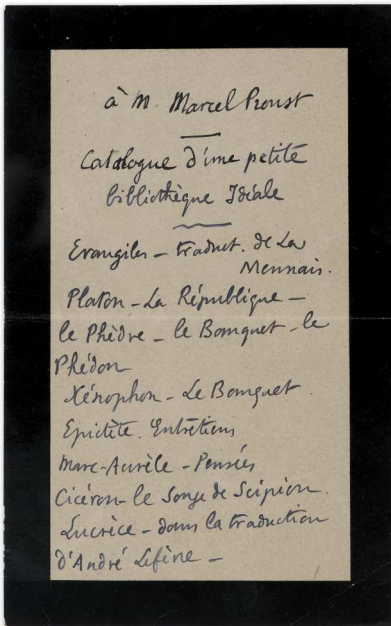 à M. Marcel Proust
Catalogue d'une petite
bibliothèque Idéale
Evangiles – traduct. de La
Mennais.
Platon – La République –
le Phèdre – le Banquet – le
Phédon
Xénophon – Le Banquet
Epictète. Entretiens
Marc-Aurèle – Pensées
Cicéron – le Songe de Scipion.
Lucrèce – dans la traduction
d'André Lefèvre –